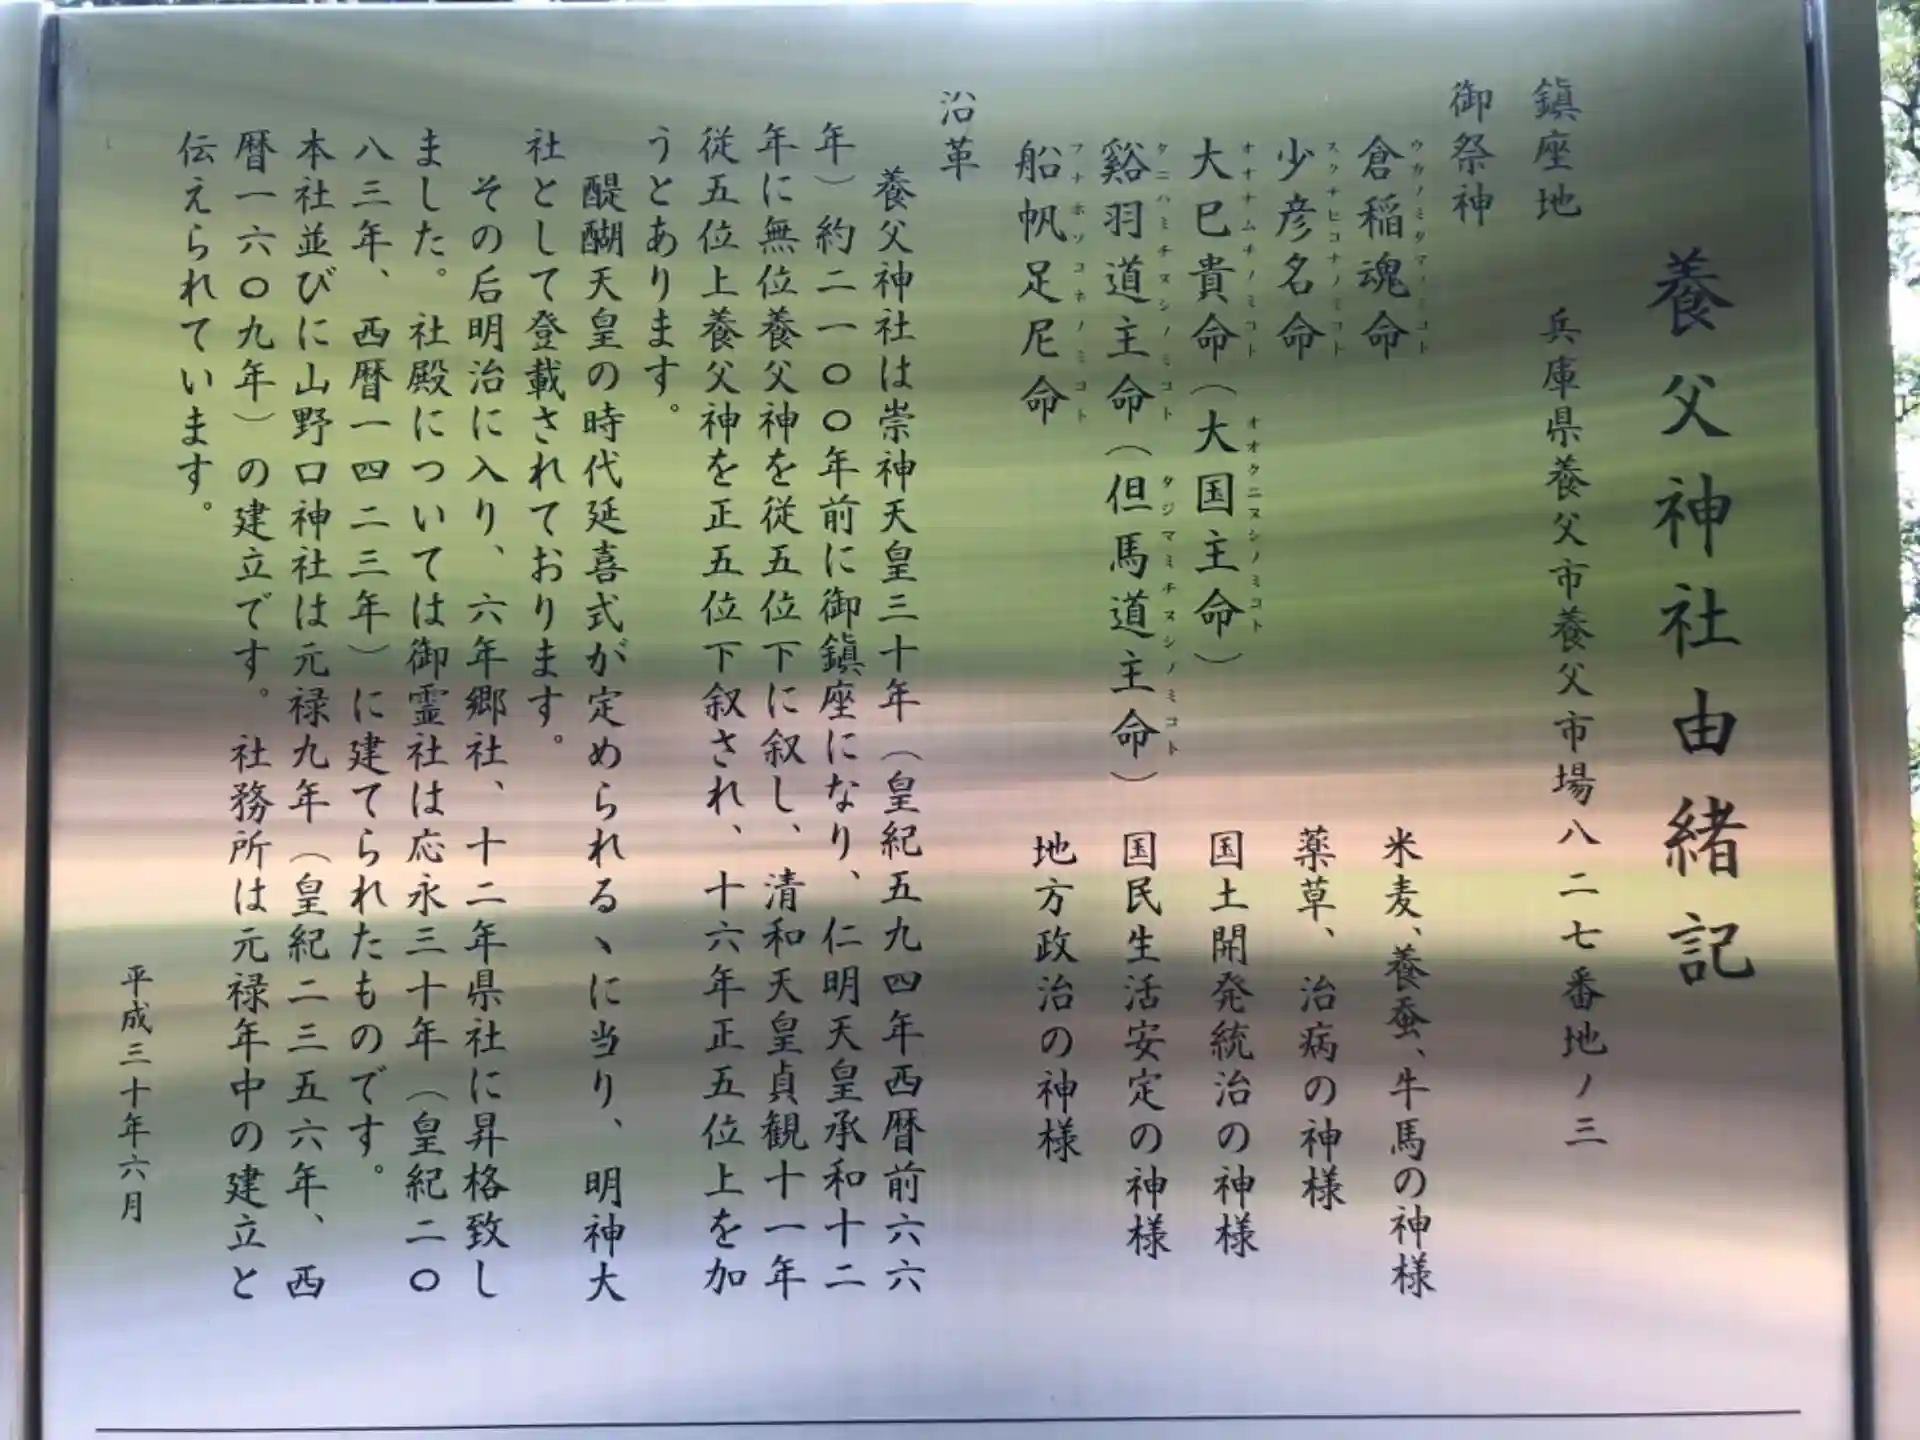 養父神社由緒記
鎮座地　兵庫県養父市養父市場八二七番地ノ三
御祭神
倉稲魂命　米麦、養蚕、牛馬の神様
ウカノミタマノミコト
少彦名命　薬草、治病の神様
スクナヒコナノミコト
大巳貴命（大国主命）　国土開発統治の神様
オオナムチノミコト　オオクニヌシノミコト
谿羽道主命（但馬道主命）　国民生活安定の神様
タニハミチヌシノミコト　タジマミチヌシノミコト
船帆足尼命　地方政治の神様
フナホソコネノミコト
沿革
養父神社は崇神天皇三十年（皇紀五九四年西暦前六六
年）約二一〇〇年前に御鎮座になり、仁明天皇承和十二
年に無位養父神を従五位下に叙し、清和天皇貞観十一年
従五位上養父神を正五位下叙され、十六年正五位上を加
うとあります。
醍醐天皇の時代延喜式が定められるヽに当り、明神大
社として登載されております。
その后明治に入り、六年郷社、十二年県社に昇格致し
ました。社殿については御霊社は応永三十年（皇紀二〇
八三年、西暦一四二三年）に建てられたものです。
本社並びに山野口神社は元禄九年（皇紀二三五六年、西
暦一六〇九年）の建立です。社務所は元禄年中の建立と
伝えられています。
平成三十年六月